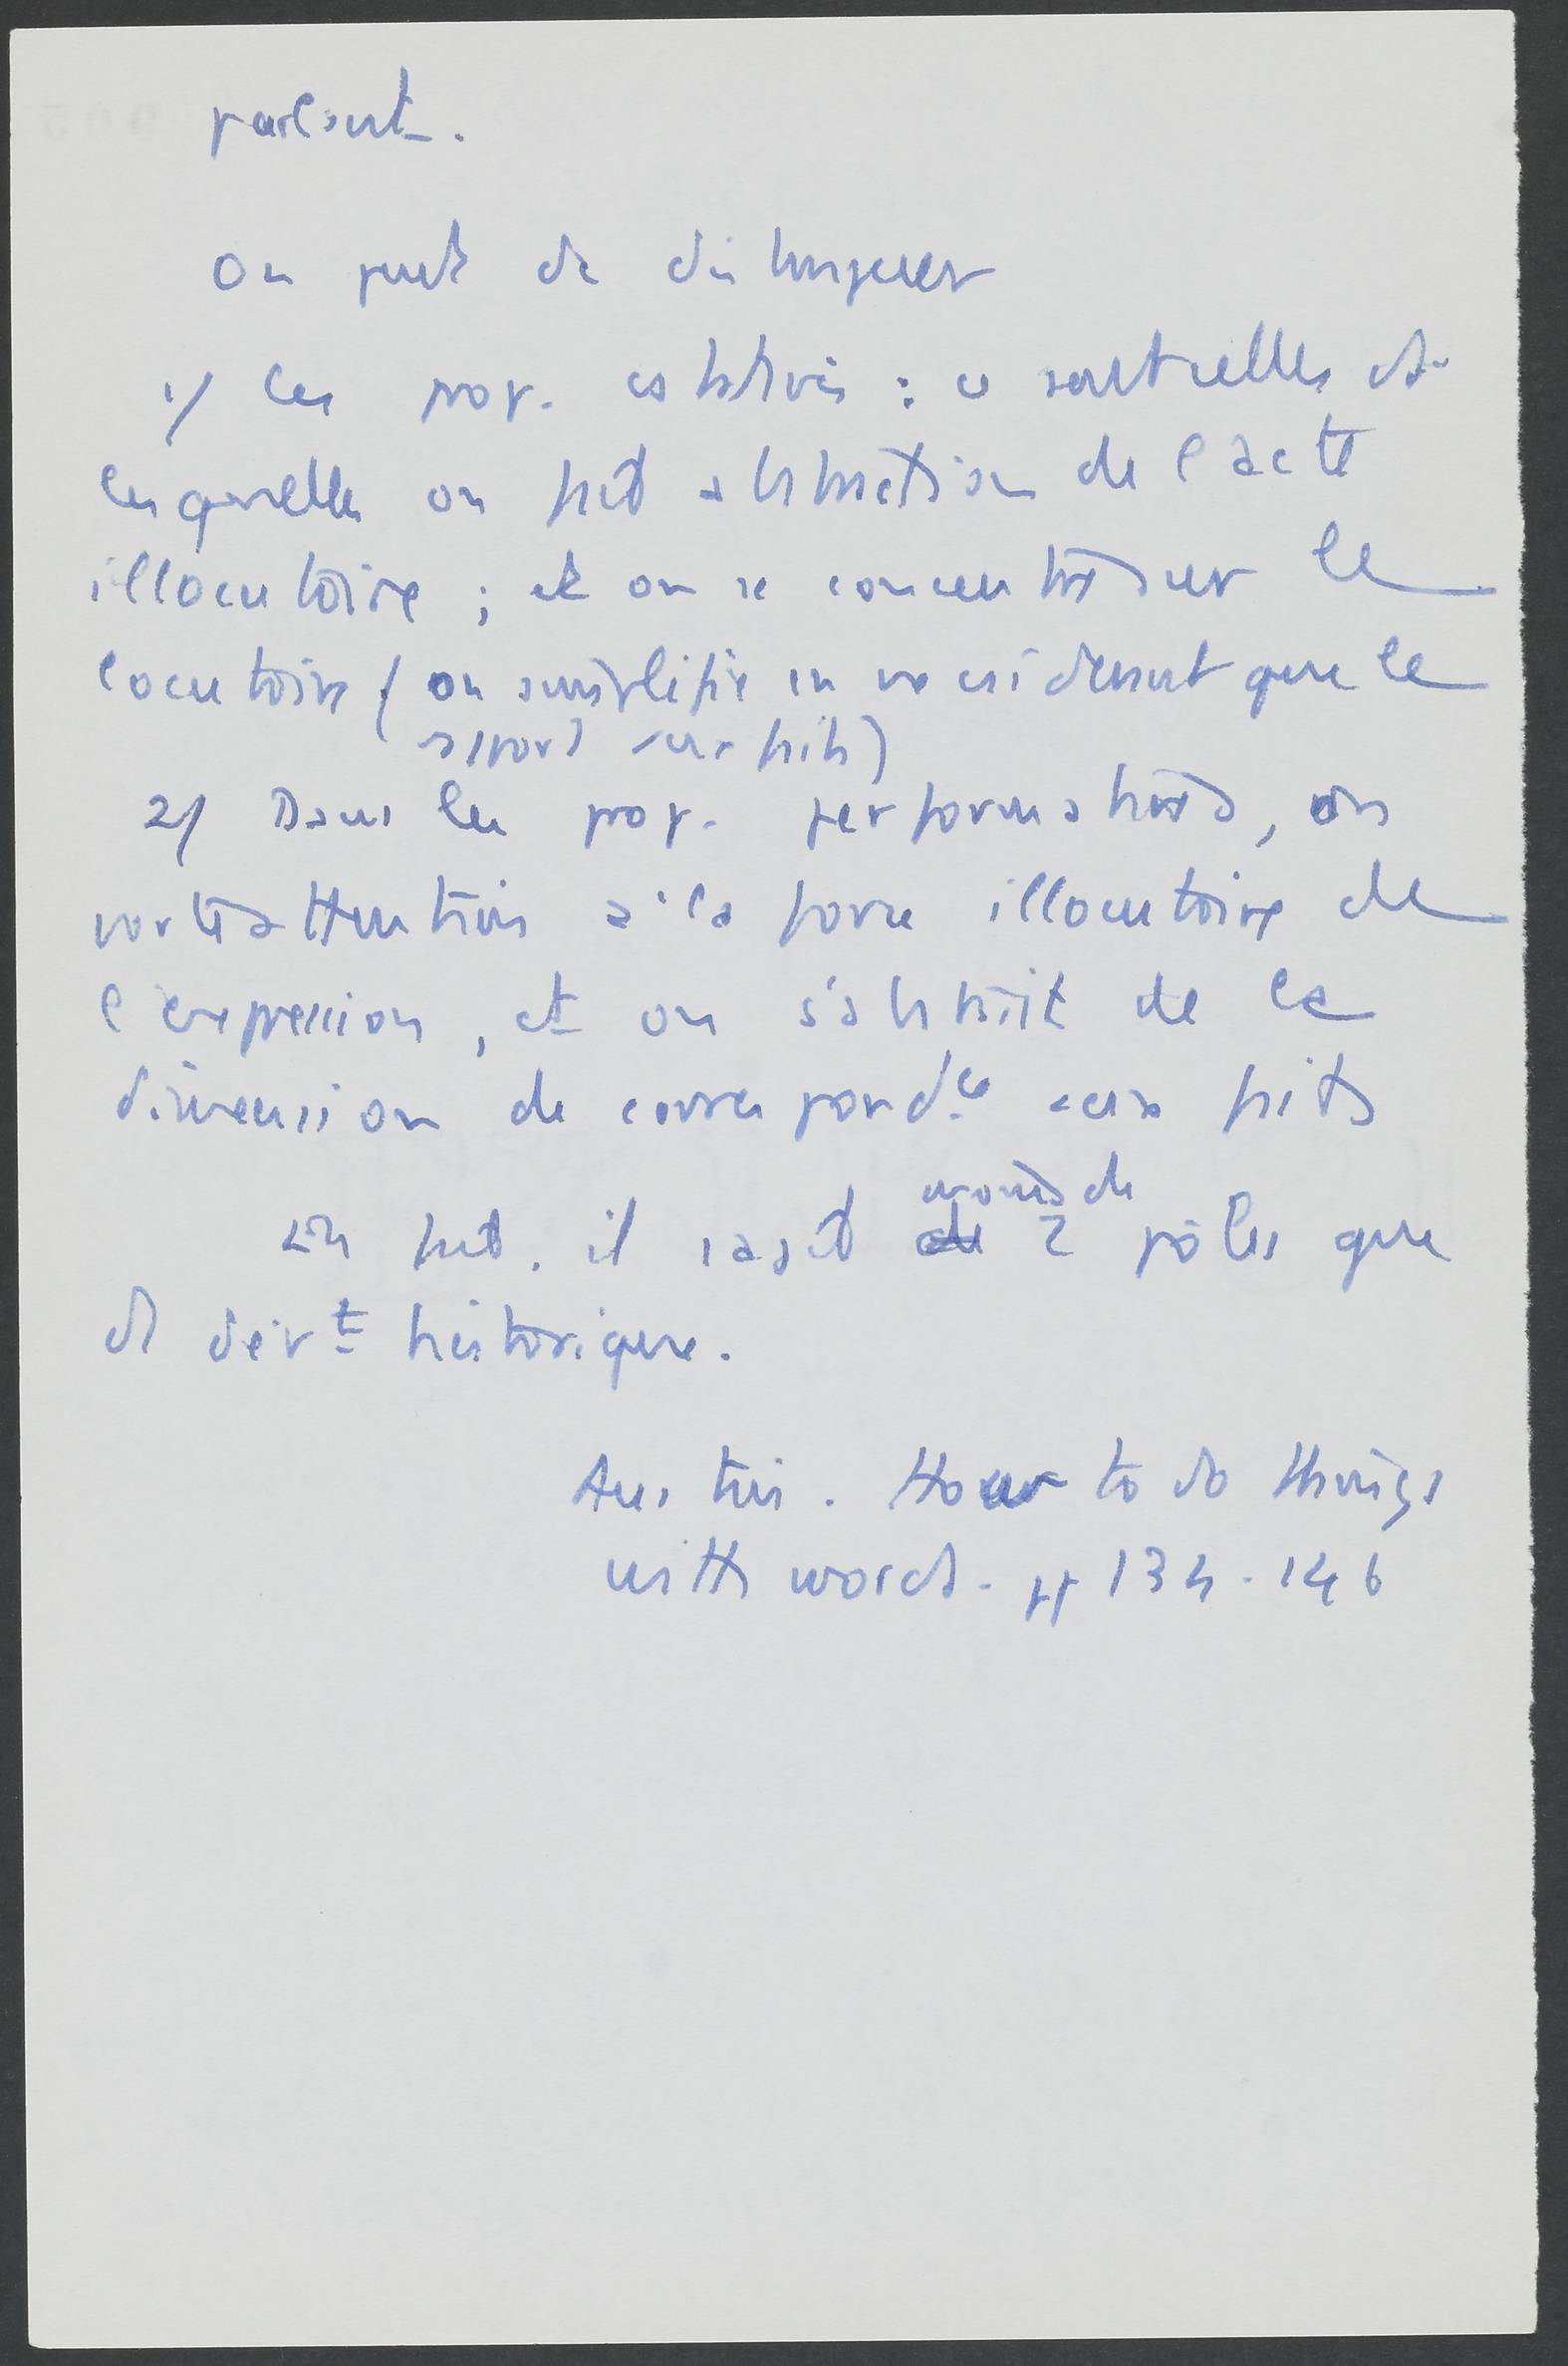 parlant.
On peut dc distinguer
1/ les prop. cstatives : ce sont celles ds
lesquelles on fait abstraction de l'acte
illocutoire ; et on se concentre sur le
locutoire (on simplifie en ne considérant que le
rapport aux faits)
2/ Dans les prop. performatives, on
porte attention à la force illocutoire de
l'expression, et on s'abstrait de la
dimension de correspondce aux faits
En fait, il s'agit moins de 2 pôles que
de dévt historique.
Austin. How to do things
with words. pp 134-146